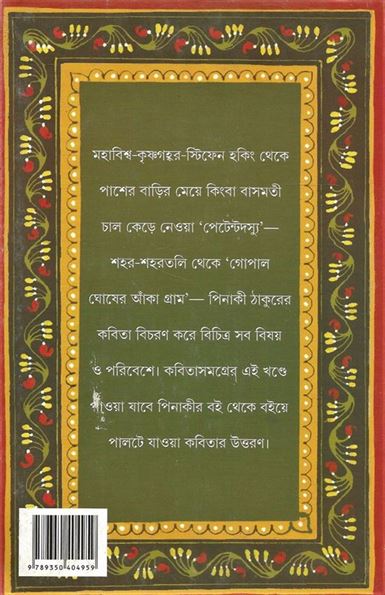 মহাবিশ্ব-কৃষ্ণগহ্বর-স্টিফেন হকিং থেকে
পাশের বাড়ির মেয়ে কিংবা বাসমতী
চাল কেড়ে নেওয়া ‘পেটেন্টদস্যু’—
শহর-শহরতলি থেকে ‘গোপাল
ঘোষের আঁকা গ্রাম’— পিনাকী ঠাকুরের
কবিতা বিচরণ করে বিচিত্র সব বিষয়
ও পরিবেশে। কবিতাসমগ্রের এই খণ্ডে
পাওয়া যাবে পিনাকীর বই থেকে বইয়ে
পালটে যাওয়া কবিতার উত্তরণ।
9 789350 404959